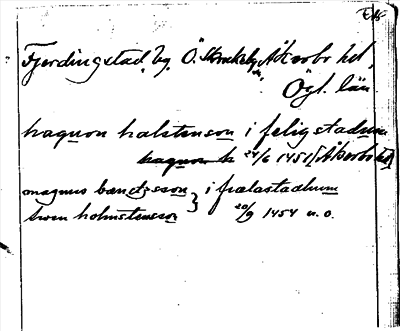 Fjerdingstad, by, Ö. Stenby sn, Åkerbo hd,
Ögl. län
haquon halstenson i feligstadum
haquon h 24/6 1451 [Åkerbo hd]
magnus bændzsson } i frælastadhum
swen holmstensson 20/9 1454 u. o.